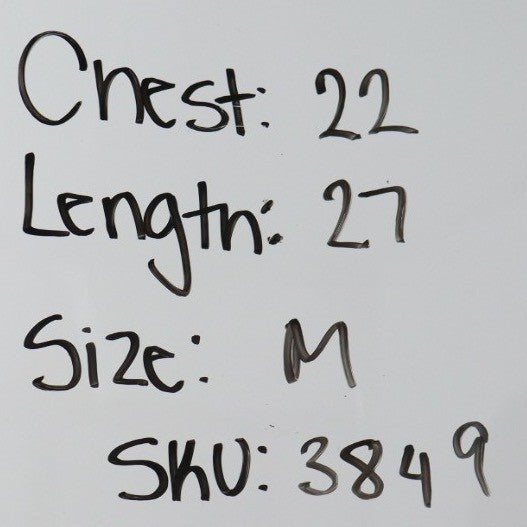 Chest: 22
Length: 27
Size: M
SKU: 3849